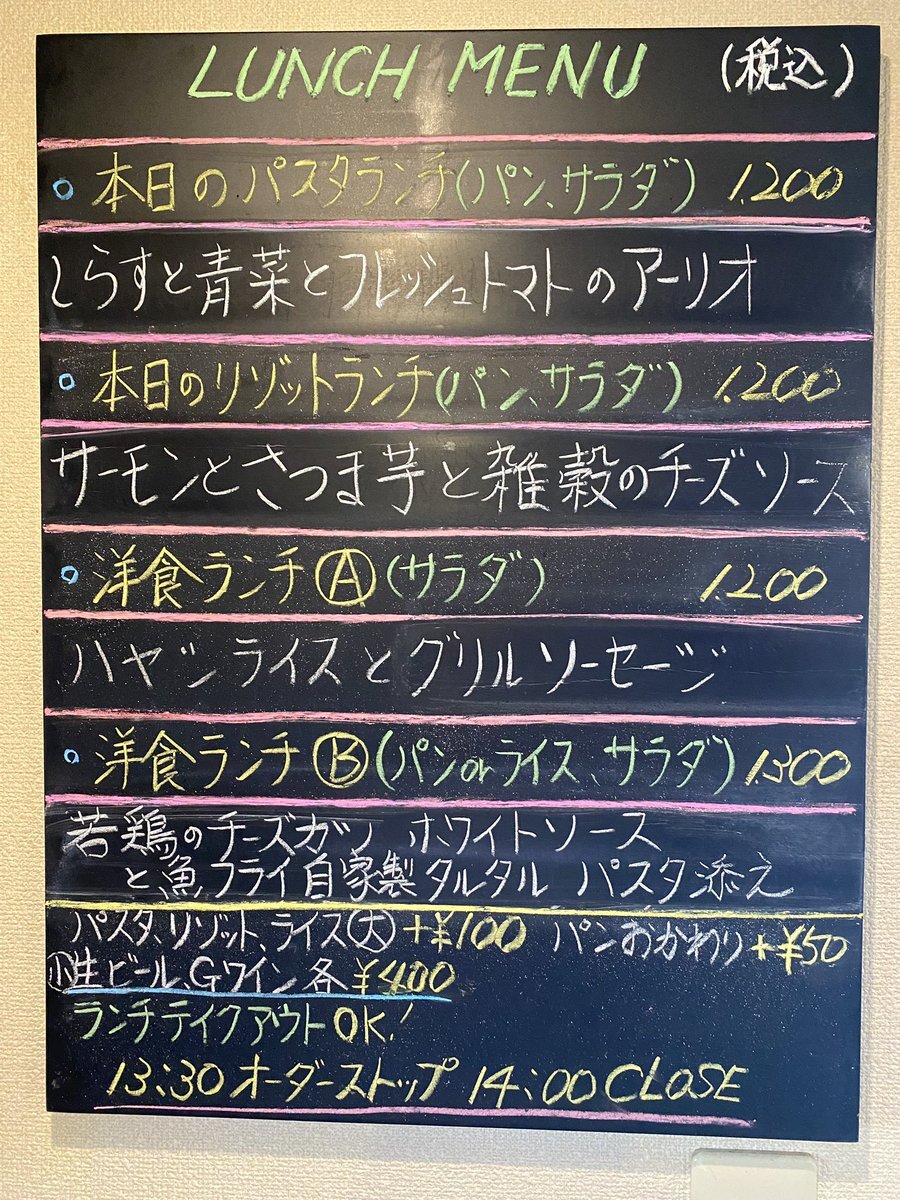 LUNCH MENU (税込)
本日のパスタランチ(パン、サラダ) 1.200
しらすと青菜とフレッシュトマトのアーリオ
本日のリゾットランチ(パン、サラダ) 1.200
サーモンとさつま芋と雑穀のチーズソース
洋食ランチⒶ(サラダ) 1.200
ハヤシライスとグリルソーセージ
洋食ランチⒷ(パンorライス、サラダ) 1.300
若鶏のチーズカツ ホワイトソース
と魚フライ自家製タルタル パスタ添え
パスタ、リゾット、ライス(大) +¥100 パンおかわり+¥50
(小)生ビール、Gワイン各¥400
ランチテイクアウトOK!
13:30オーダーストップ 14:00CLOSE